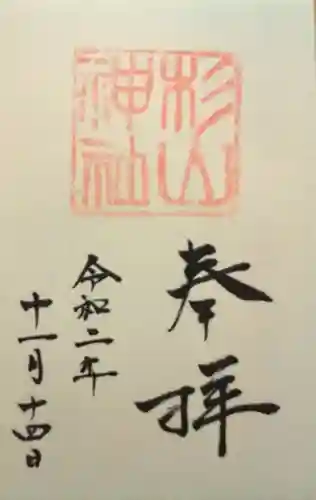 杉山
神社
奉拝
令和二年
十一月十四日